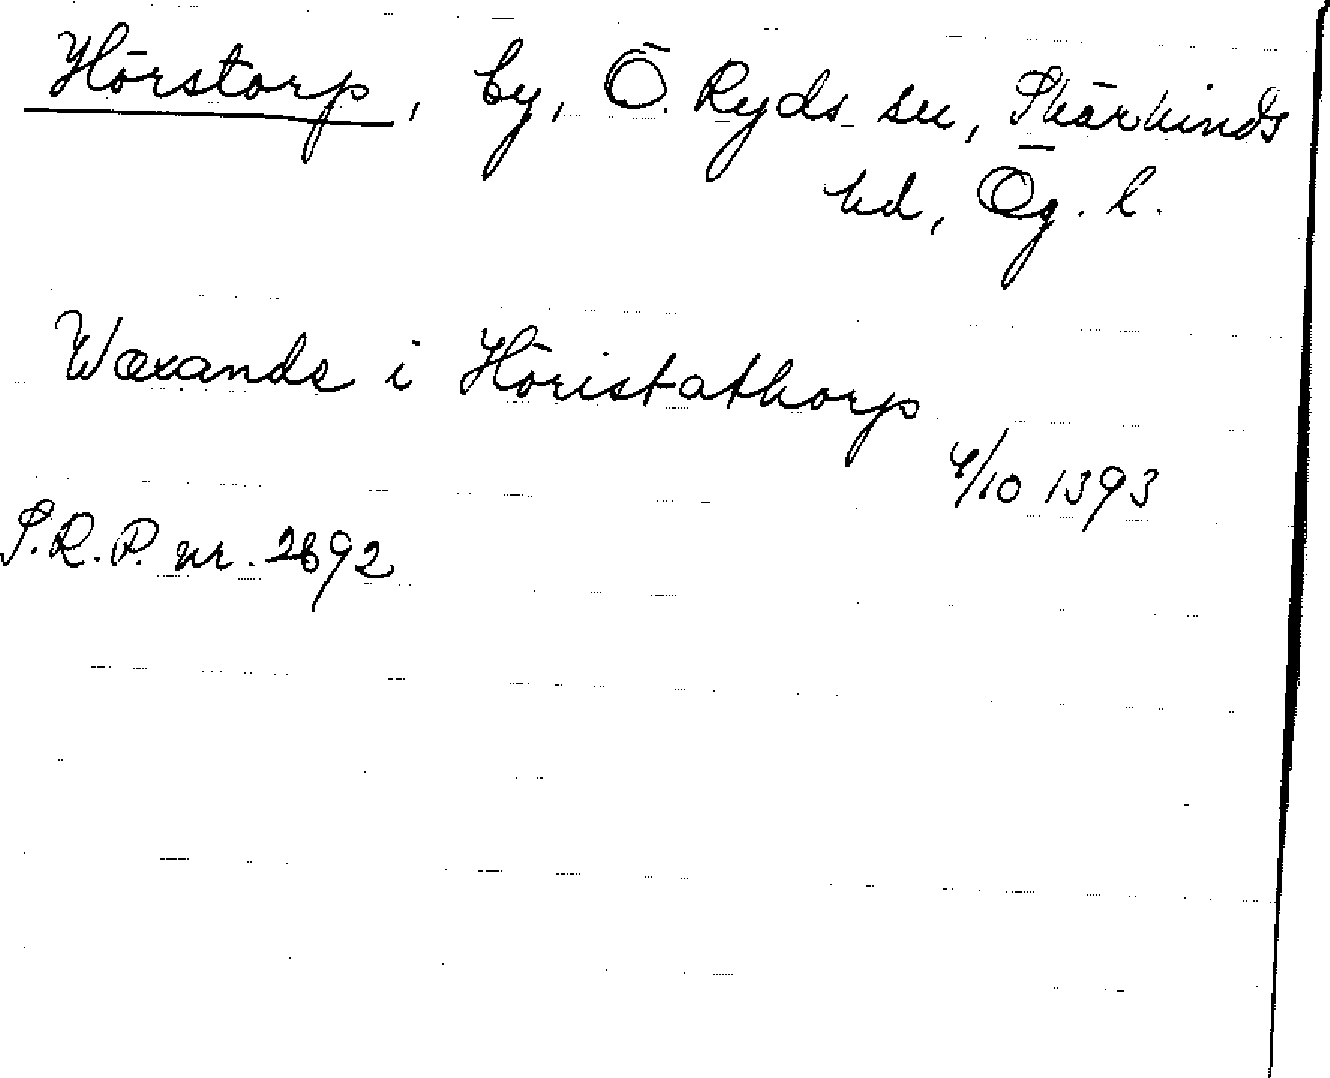 Hörstorp, by, Ö. Ryds sn, Skärkinds
hd, Ög. l.
Wœxande i Höristathorp
4/10 1393
S.R.P. nr. 2692